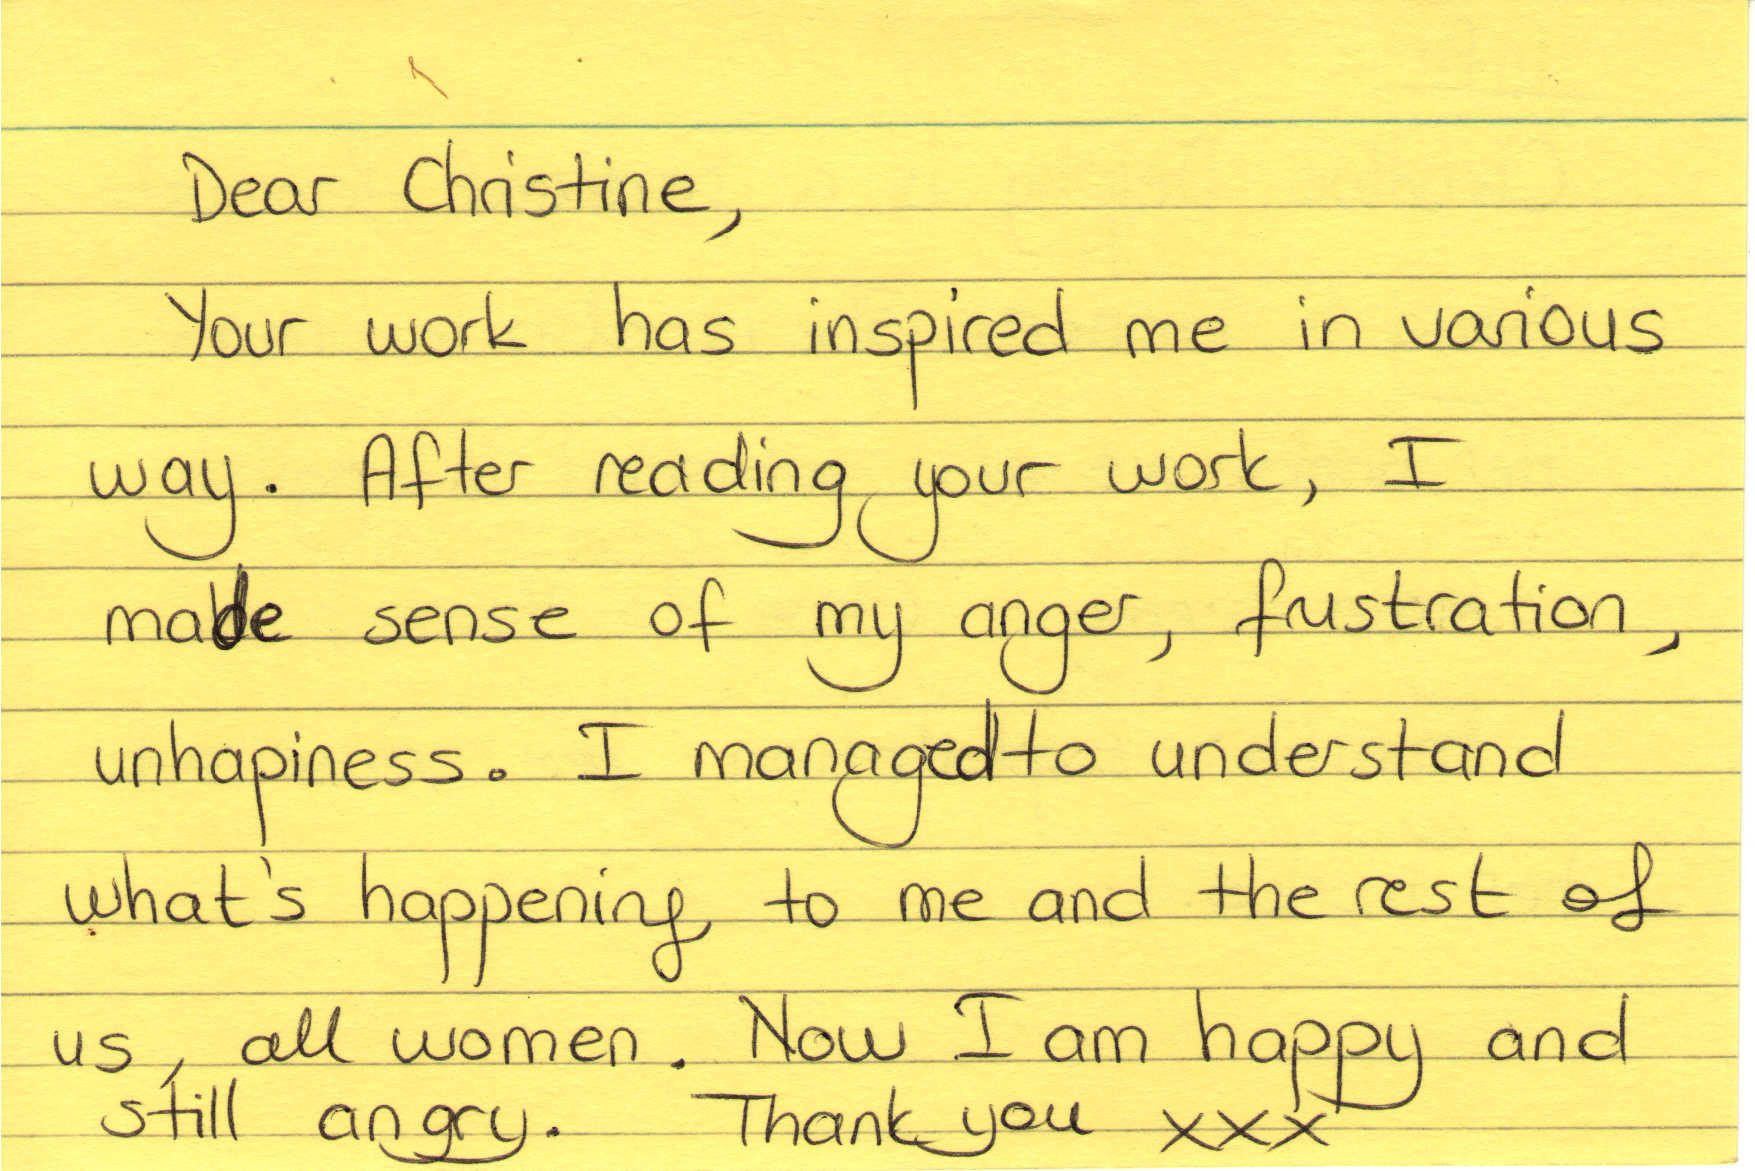 Dear Christine,
Your work has inspired me in various
way. After reading your work, I
made sense of my anger, frustration,
unhapiness. I managed to understand
what's happening to me and the rest of
us, all women. Now I am happy and
still angry. Thank you xxx